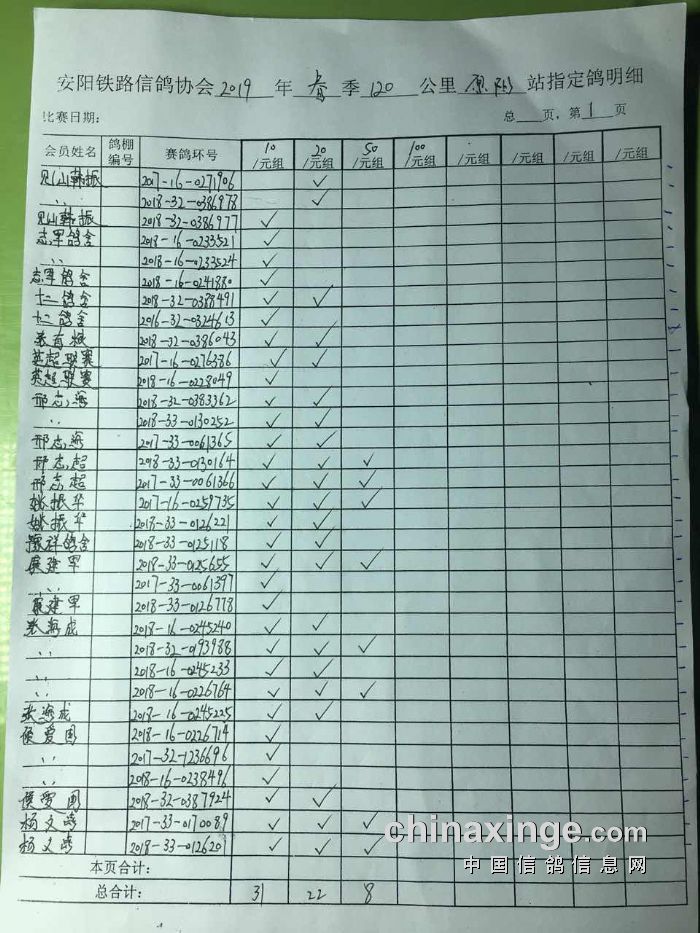 安阳铁路信鸽协会2019年春季120公里原阳站指定鸽明细
比赛日期： 总 页，第1页
会员姓名 鸽棚编号 赛鸽环号 10/元组 20/元组 50/元组 100/元组 /元组 /元组 /元组 /元组
韩振 2017-16-0271906 ✓
〃 2018-32-0386978 ✓
韩振 2018-32-0386977 ✓
志军鸽舍 2018-16-0233521 ✓
〃 2018-16-0233524 ✓
志军鸽舍 2018-16-0241880 ✓
十二鸽舍 2018-32-0388491 ✓ ✓
十二鸽舍 2016-32-0324613 ✓
2018-32-0386043 ✓ ✓
英超联赛 2017-16-0276386 ✓ ✓
英超联赛 2018-16-0228049 ✓
邢志海 2018-32-0383362 ✓ ✓
〃 2018-33-0130252 ✓ ✓
邢志海 2017-33-0061365 ✓ ✓
邢志超 2018-33-0130164 ✓ ✓ ✓
邢志超 2017-33-0061366 ✓ ✓ ✓
姚振华 2017-16-0259735 ✓ ✓ ✓
姚振华 2018-33-0126221 ✓ ✓
祥鸽舍 2018-33-0125118 ✓ ✓
建军 2018-33-0125655 ✓ ✓ ✓
〃 2017-33-0061397 ✓
建军 2018-33-0126778 ✓
张海成 2018-16-0245240 ✓ ✓
〃 2018-32-0193988 ✓ ✓ ✓
〃 2018-16-0245233 ✓ ✓
〃 2018-16-0226764 ✓ ✓ ✓
张海成 2018-16-0245225 ✓ ✓
侯爱国 2018-16-0226714 ✓
〃 2017-32-1236696 ✓
〃 2018-16-0238496 ✓
侯爱国 2018-32-0387924 ✓ ✓
杨文 2017-33-0170089 ✓ ✓ ✓
杨文 2018-33-0126209 ✓ ✓ ✓
本页合计：
总合计： 31 22 8
chinaxinge.com
中国信鸽信息网